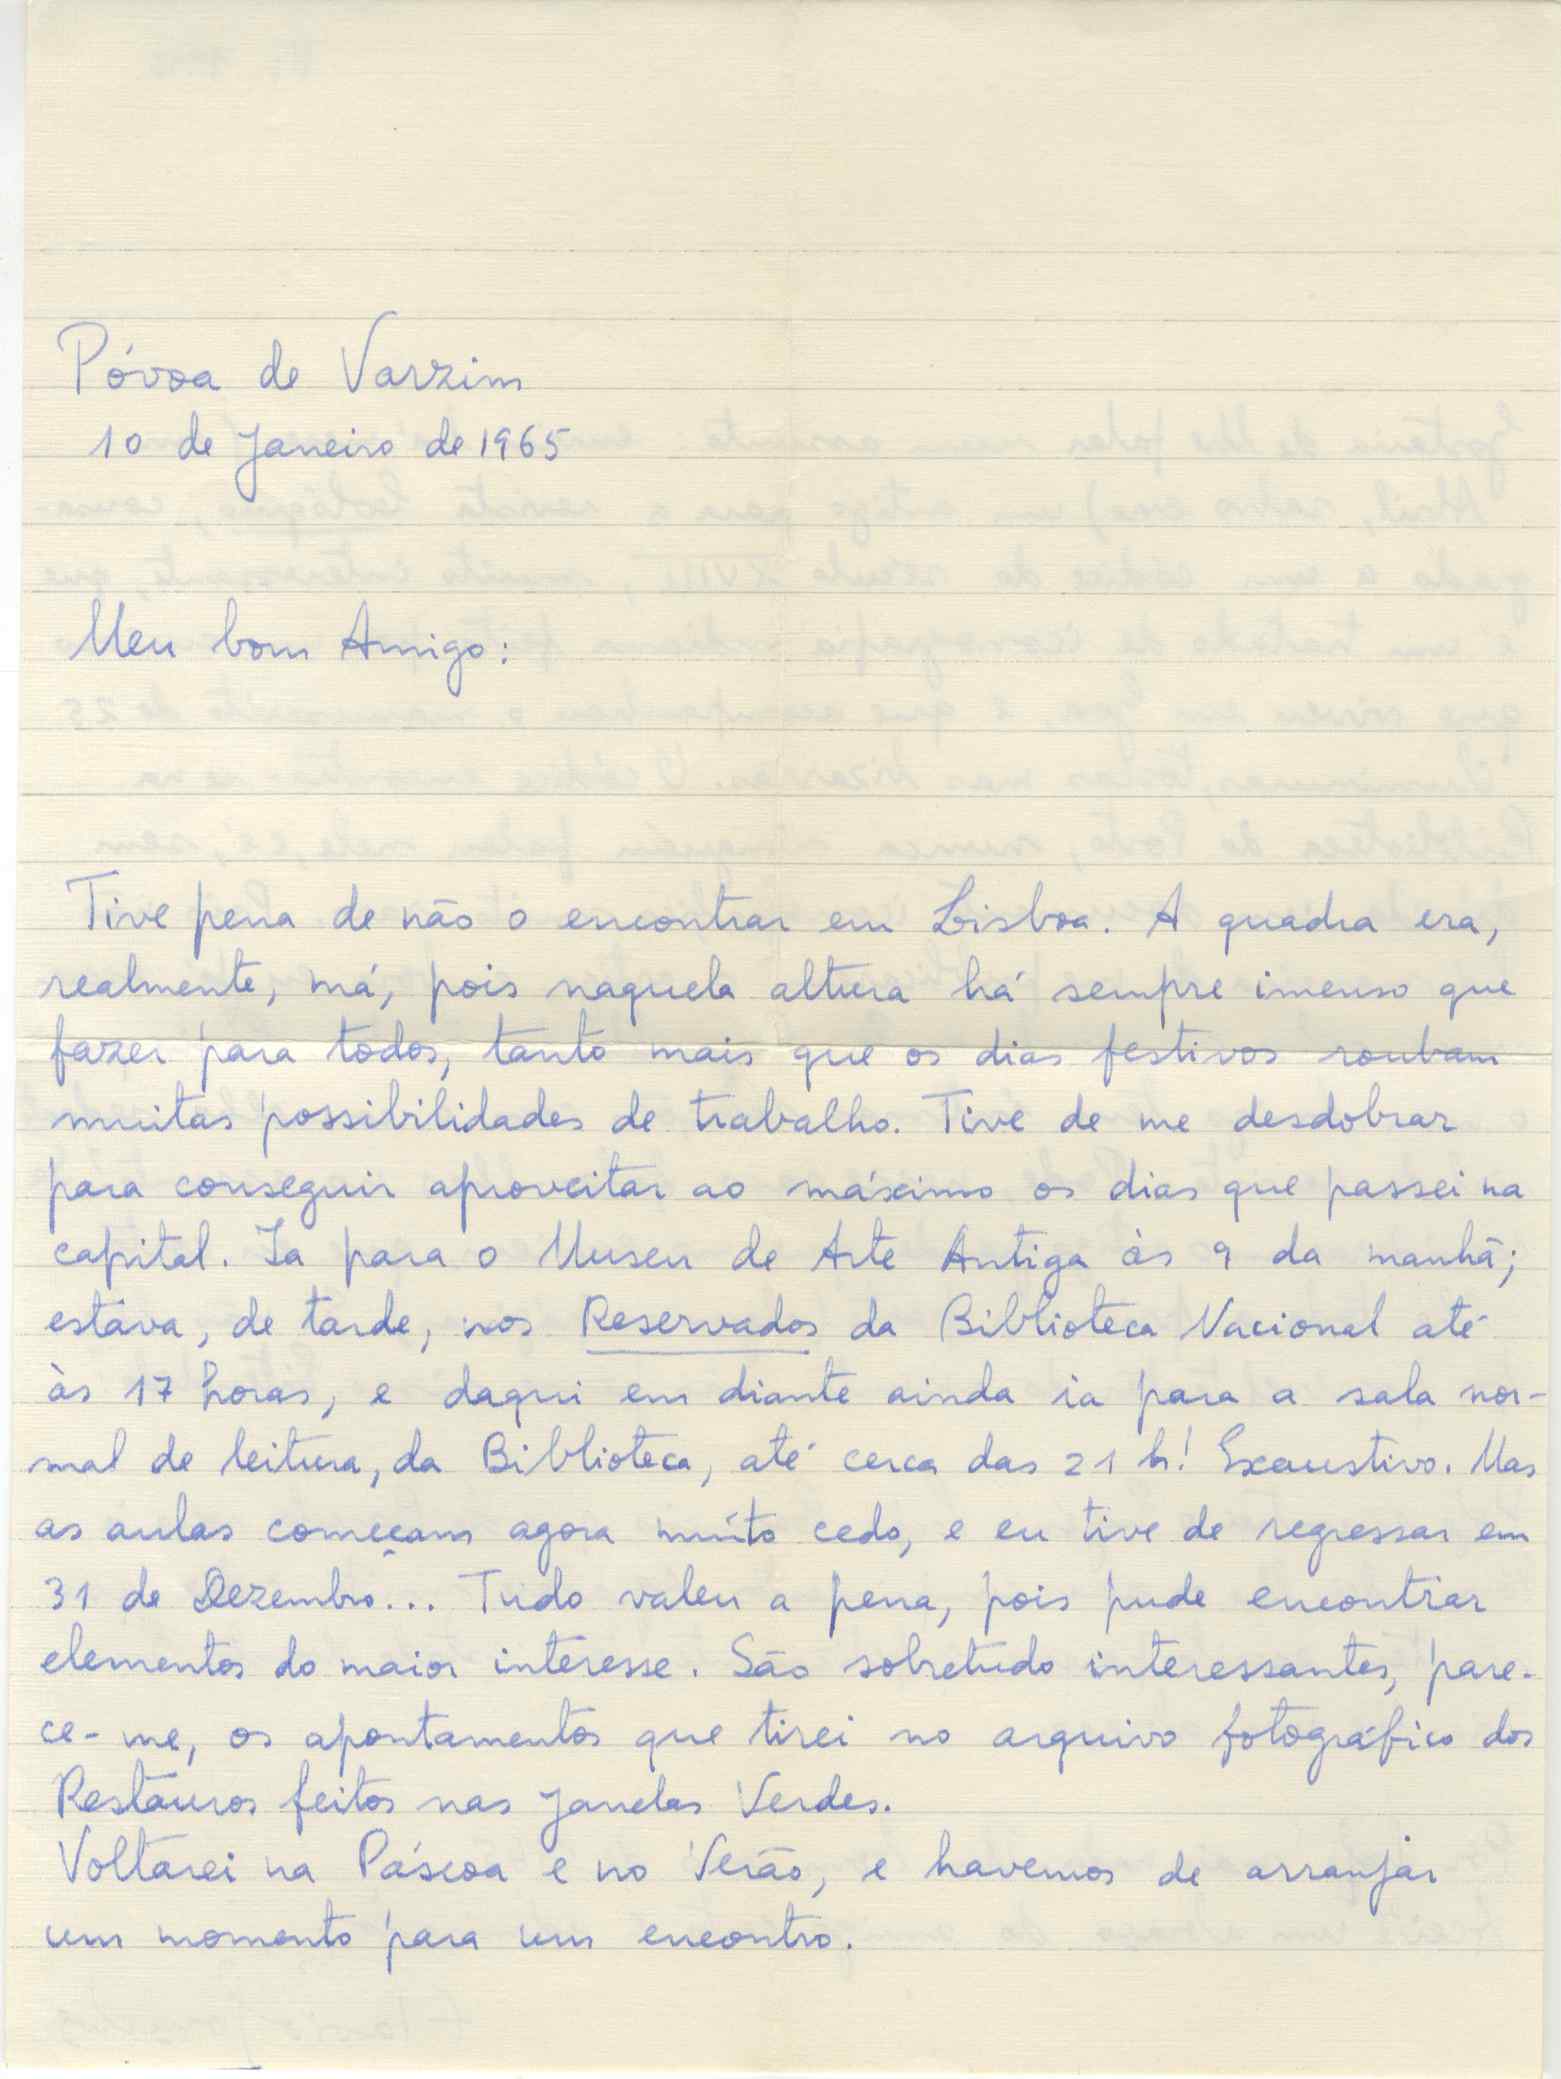 Póvoa de Varzim
10 de Janeiro de 1965
Meu bom Amigo:
Tive pena de não o encontrar em Lisboa. A quadra era,
realmente, má, pois naquela altura há sempre imenso que
fazer para todos, tanto mais que os dias festivos roubam
muitas possibilidades de trabalho. Tive de me desdobrar
para conseguir aproveitar ao máximo os dias que passei na
capital. Ia para o Museu de Arte Antiga às 9 da manhã;
estava, de tarde, nos Reservados da Biblioteca Nacional até
às 17 horas, e daqui em diante ainda ia para a sala nor-
mal de leitura, da Biblioteca, até cerca das 21 h! Exaustivo. Mas
as aulas começam agora muito cedo, e eu tive de regressar em
31 de Dezembro... Tudo valeu a pena, pois pude encontrar
elementos do maior interesse. São sobretudo interessantes, pare-
ce-me, os apontamentos que tirei no arquivo fotográfico dos
Restauros feitos nas Janelas Verdes.
Voltarei na Páscoa e no Verão, e havemos de arranjar
um momento para um encontro.